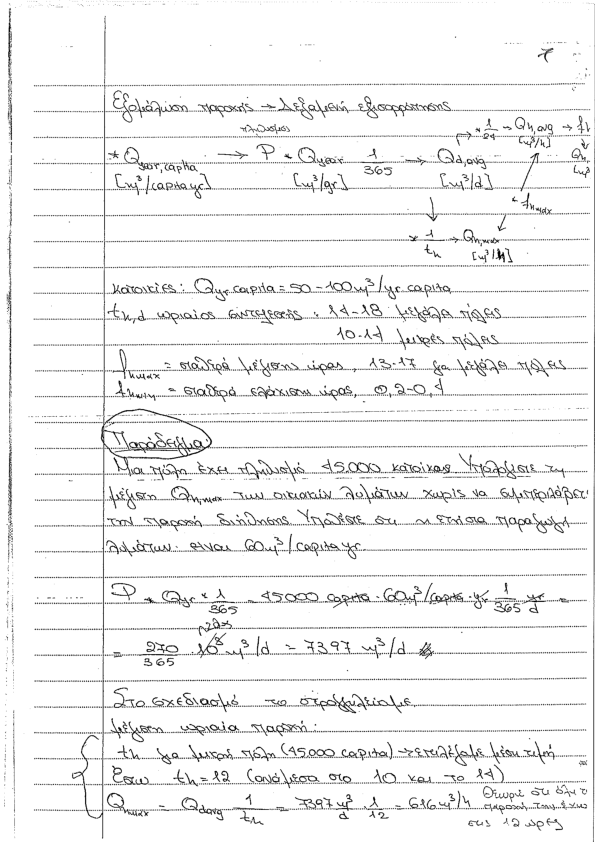 7
Εξομάλυνση παροχής → Δεξαμενή εξισορρόπησης
πληθυσμός
* Q year, capita → P * Q year 1/365 → Qd,avg → * 1/24 → Qh,avg → fh
[m³/capita yr] [m³/yr] [m³/d] [m³/h] Qh, [m³
* fhmax
* 1/th → Qh,max
[m³/h]
κατοικίες: Qyr capita = 50 - 100 m³/yr capita
th,d ωριαίος συντελεστής: 14-18 μεγάλες πόλεις
10-14 μικρές πόλεις
fhmax = σταθερά μέγιστης ώρας, 13-17 για μεγάλες πόλεις
fhmin = σταθερά ελάχιστης ώρας, 0,2-0,4
Παράδειγμα:
Μια πόλη έχει πληθυσμό 45.000 κατοίκους Υπολογίστε τη
μέγιστη Qh,max των οικιακών λυμάτων χωρίς να συμπεριλάβετε
την παροχή διήθησης Υποθέστε οτι η ετήσια παραγωγή
λυμάτων είναι 60 m³/capita yr.
P * Qyr * 1/365 = 45000 capita · 60 m³/capita · yr 1/365 yr/d =
= 270/365 · 10³ m³/d = 7397 m³/d
Στο σχεδιασμό το στρογγυλεύαμε
μέγιστη ωριαία παροχή:
th για μικρή πόλη (45.000 capita) → επιλέξαμε μέση τιμή
Εστω th = 12 (ανάμεσα στο 10 και το 14)
Qhmax = Qdavg 1/th = 7397 m³/d 1/12 = 616 m³/h Θεωρώ οτι όλη
παροχή την έχω
στις 12 ώρες